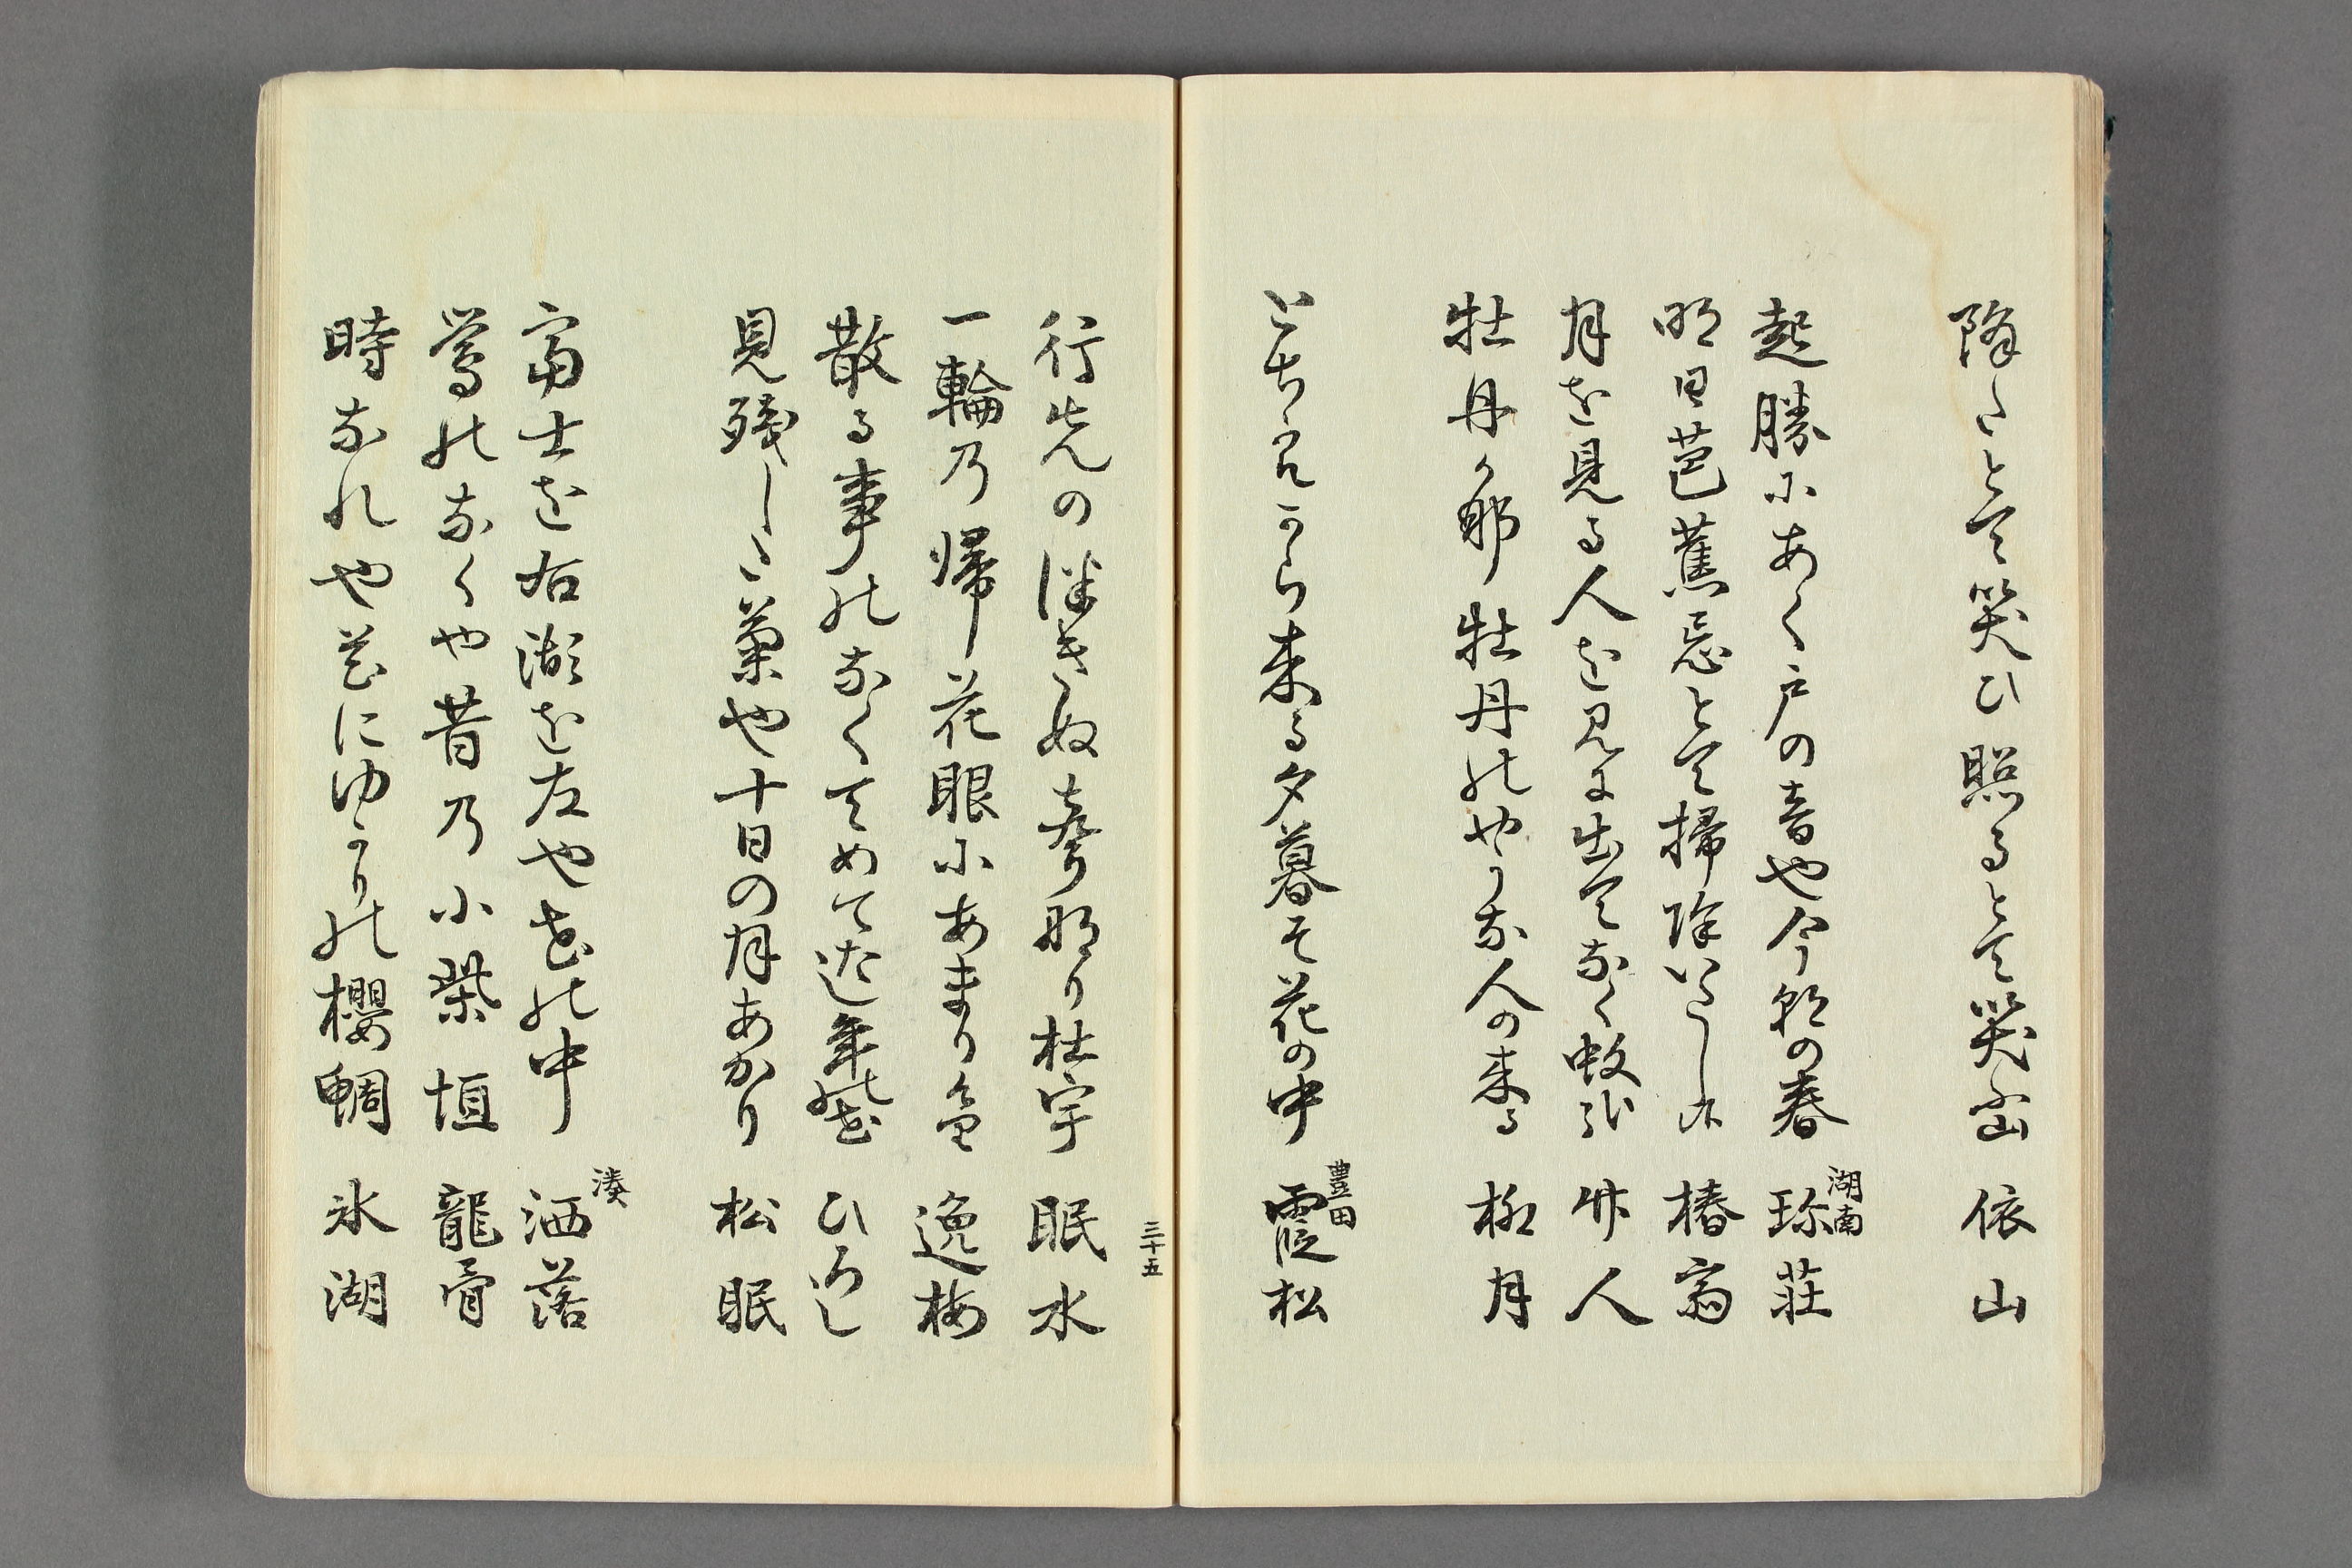 降るとて笑ひ照るとて笑ふ山 依山
湖南
起勝にあく戸の音や今朝の春 珎荘
明日芭蕉忌とて掃除いたしけ 椿翁
月を見る人を見に出てなく蚊哉 竹人
牡丹か那牡丹のやうな人の来る 柳月
豊田
から来る夕暮や花の中 霞松
三十五
行先の ぬ 那り杜宇 眠水
一輪乃帰花眼にあまり 逸梅
散る事のなくてめて 年の花 ひろし
見残しゝ菊や十日の月あかり 松眠
湊
富士を右湖を左や花の中 洒落
鶯のなくや昔乃小柴垣 龍骨
時なれや花にゆかりの櫻鯛 氷湖